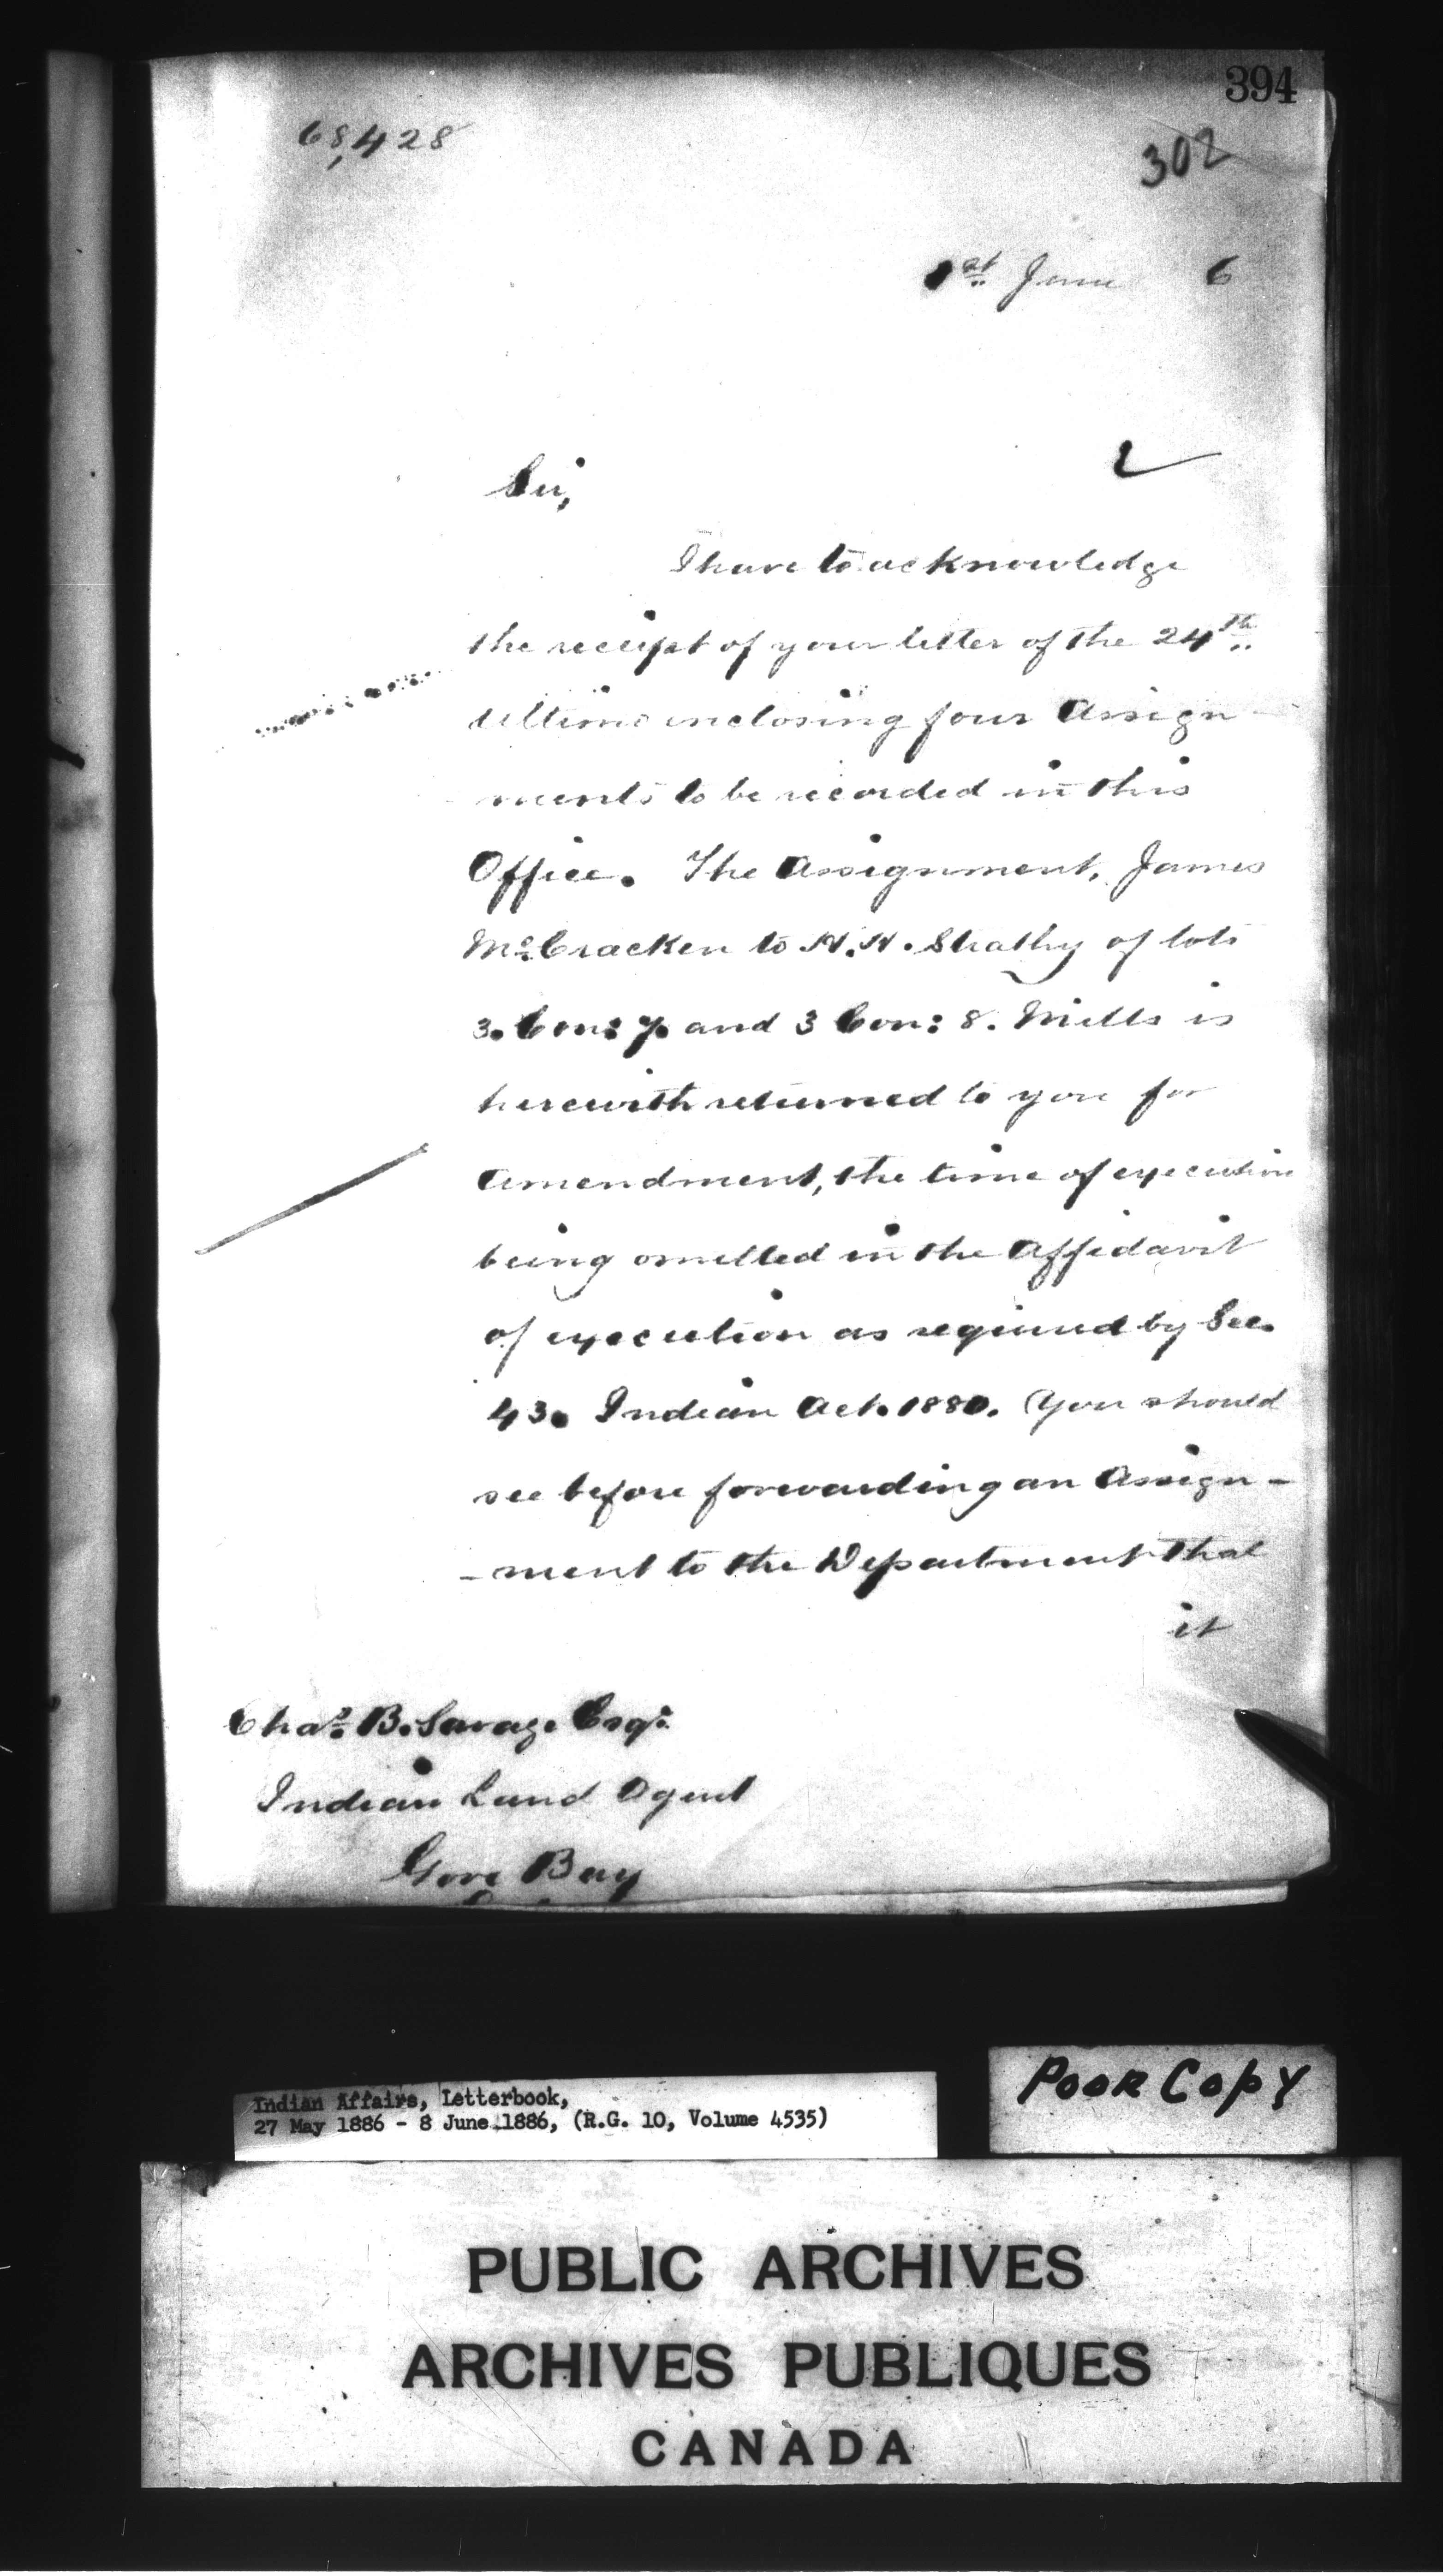 394
68,428
302
1st June 6
Sir,
I have to acknowledge
the receipt of your letter of the 24th
ultimo inclosing four Assign-
ments to be recorded in this
Office. The Assignment, James
McCracken to H.H. Strathy of lots
3. Con: 7. and 3 Con: 8. Mills is
herewith returned to you for
Amendment, the time of execution
being omitted in the Affidavit
of execution as required by Sec.
43. Indian Act. 1880. You should
see before forwarding an Assign-
-ment to the Department that
it
Chas. B. Savage Esqr.
Indian Land Agent
Gore Bay
Indian Affairs, Letterbook,
27 May 1886 - 8 June 1886, (R.G. 10, Volume 4535)
Poor Copy
PUBLIC ARCHIVES
ARCHIVES PUBLIQUES
CANADA